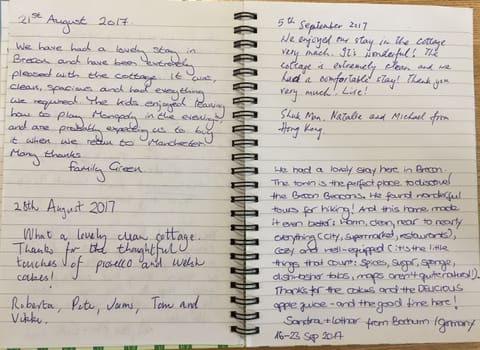 21st August 2017.
We have had a lovely stay in
Brecon and have been extremely
pleased with the cottage. It was,
clean, spacious and had everything
we required. The kids enjoyed learning
how to play Monopoly in the evenings
and are probably expecting us to buy
it when we return to Manchester.
Many thanks
Family Green.
28th August 2017
What a lovely clean cottage.
Thanks for the thoughtful
touches of prosecco and welsh
cakes!
Roberta, Pete, James, Tom and
Vikki.
5th September 2017
We enjoyed our stay in the cottage
very much. It's wonderful! The
cottage is extremely clean and we
had a comfortable stay! Thank you
very much!
Shuk Man, Natalie and Michael from
Hong Kong.
We had a lovely stay here in Brecon.
The town is the perfect place to discover
the Brecon Beacons. We found wonderful
tours for hiking! And this home made
it even better: Warm, clean, near to nearly
everything (city, supermarket, restaurants),
cosy and well-equipped (it's the little
things that count: spices, sugar, sponge,
dishwasher tabs, maps aren't quite natural!).
Thanks for the cakes and the DELICIOUS
apple juice - and the good time here!
Sandra + Lothar from Bochum (Germany)
16-23 Sep 2017